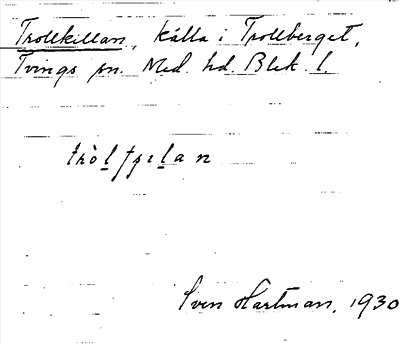 Trollkillan, källa i Trollberget,
Tvings sn. Med. hd. Blek. l.
Sven Hartman, 1930